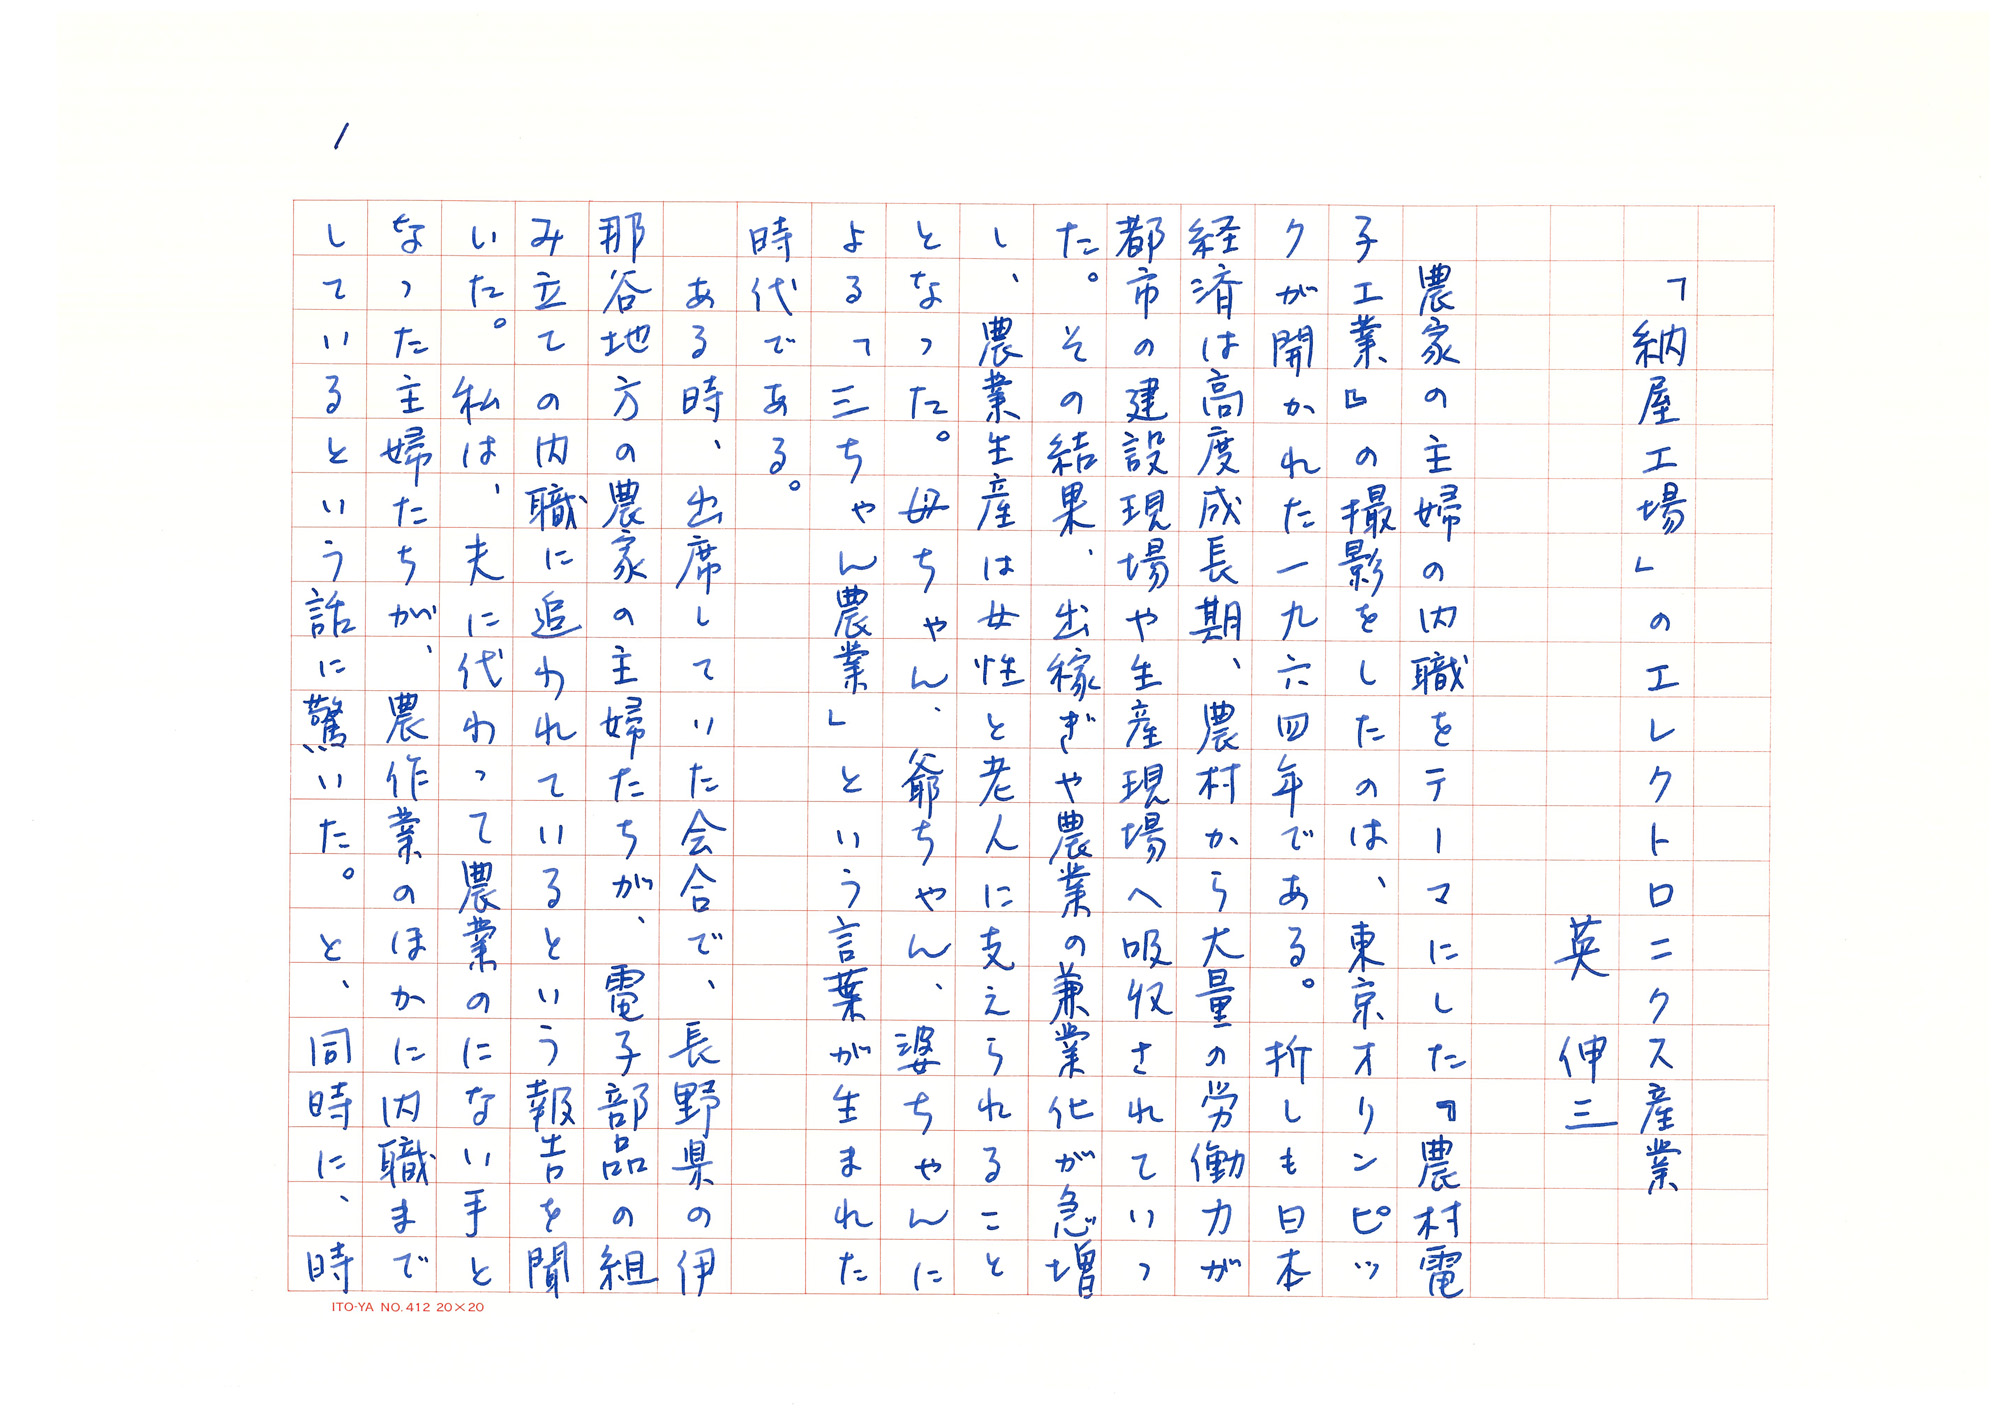 1
「納屋工場」のエレクトロニクス産業
英 伸三
農家の主婦の内職をテーマにした『農村電
子工業』の撮影をしたのは、東京オリンピッ
クが開かれた一九六四年である。折しも日本
経済は高度成長期、農村から大量の労働力が
都市の建設現場や生産現場へ吸収されていっ
た。その結果、出稼ぎや農業の兼業化が急増
し、農業生産は女性と老人に支えられること
となった。母ちゃん、爺ちゃん、婆ちゃんに
よる「三ちゃん農業」という言葉が生まれた
時代である。
ある時、出席していた会合で、長野県の伊
那谷地方の農家の主婦たちが、電子部品の組
み立ての内職に追われているという報告を聞
いた。私は、夫に代わって農業のにない手と
なった主婦たちが、農作業のほかに内職まで
しているという話に驚いた。と、同時に、時
ITO-YA NO.412 20×20